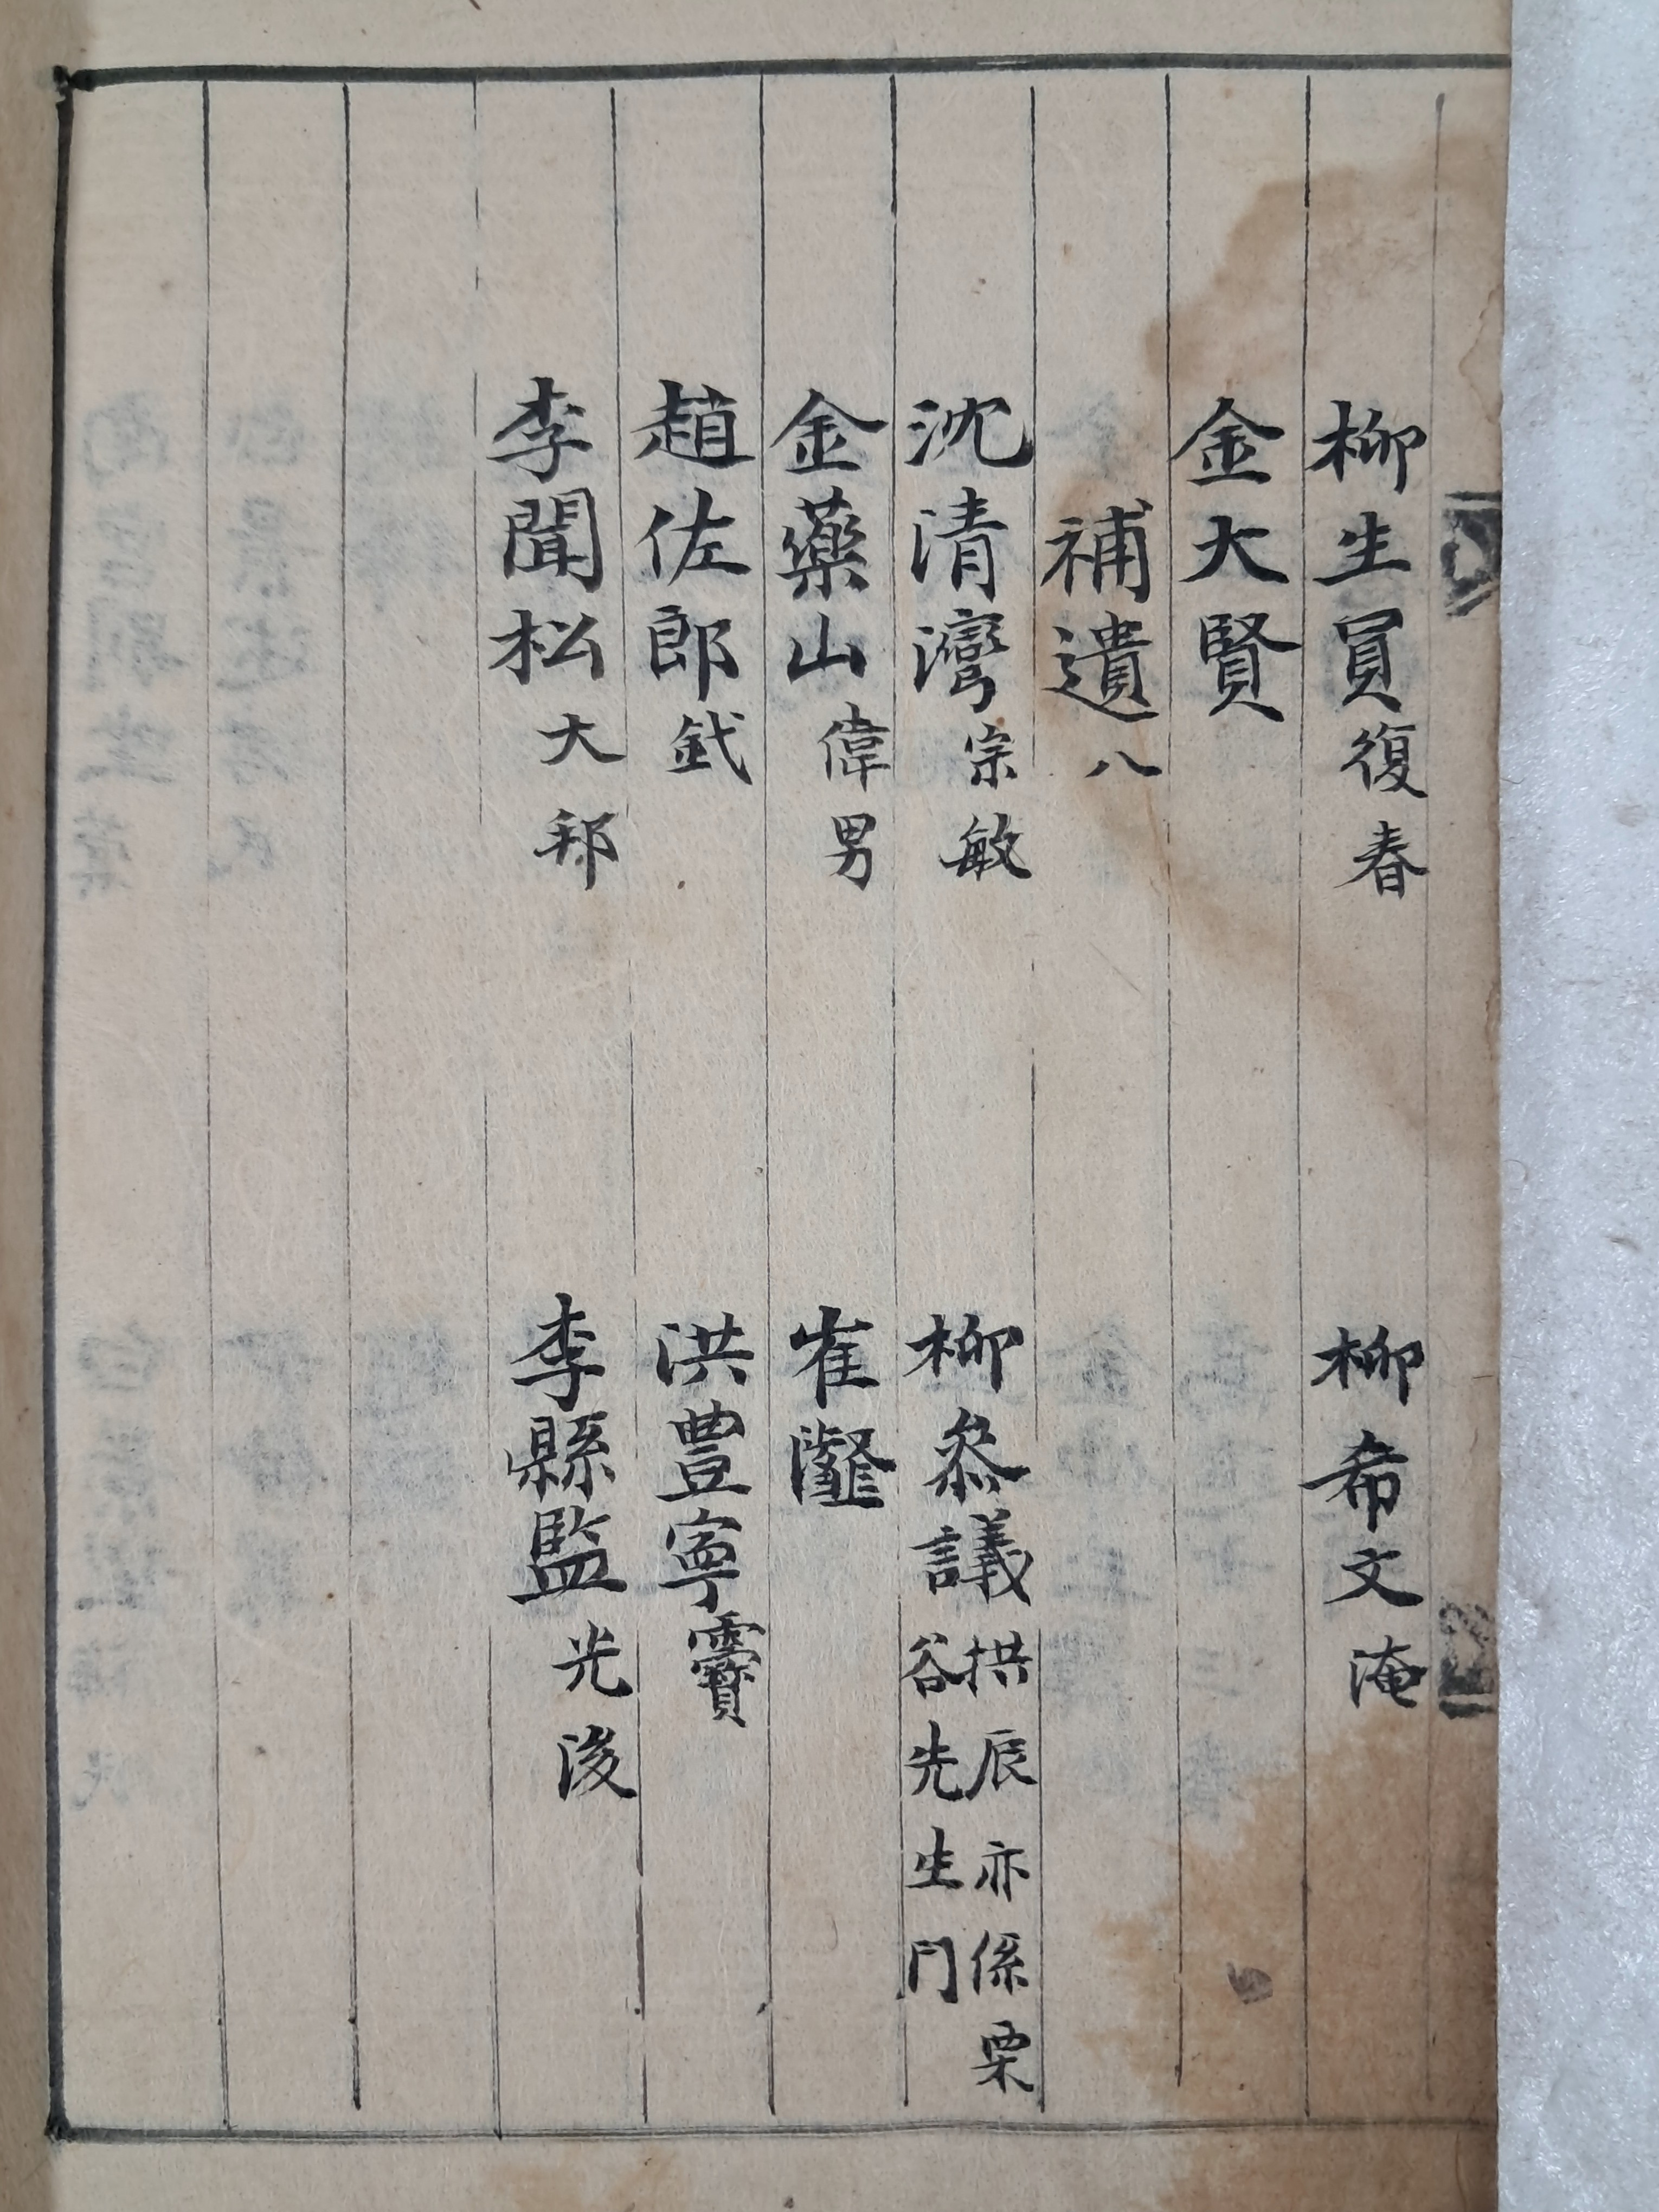 柳生員復春 柳希文淹
金大賢
補遺八
沈清灣宗敏 柳叅議拱辰亦係栗谷先生門
金藥山偉男 崔灩
趙佐郎鉽 洪豊寧靌
李聞松大邦 李縣監光浚